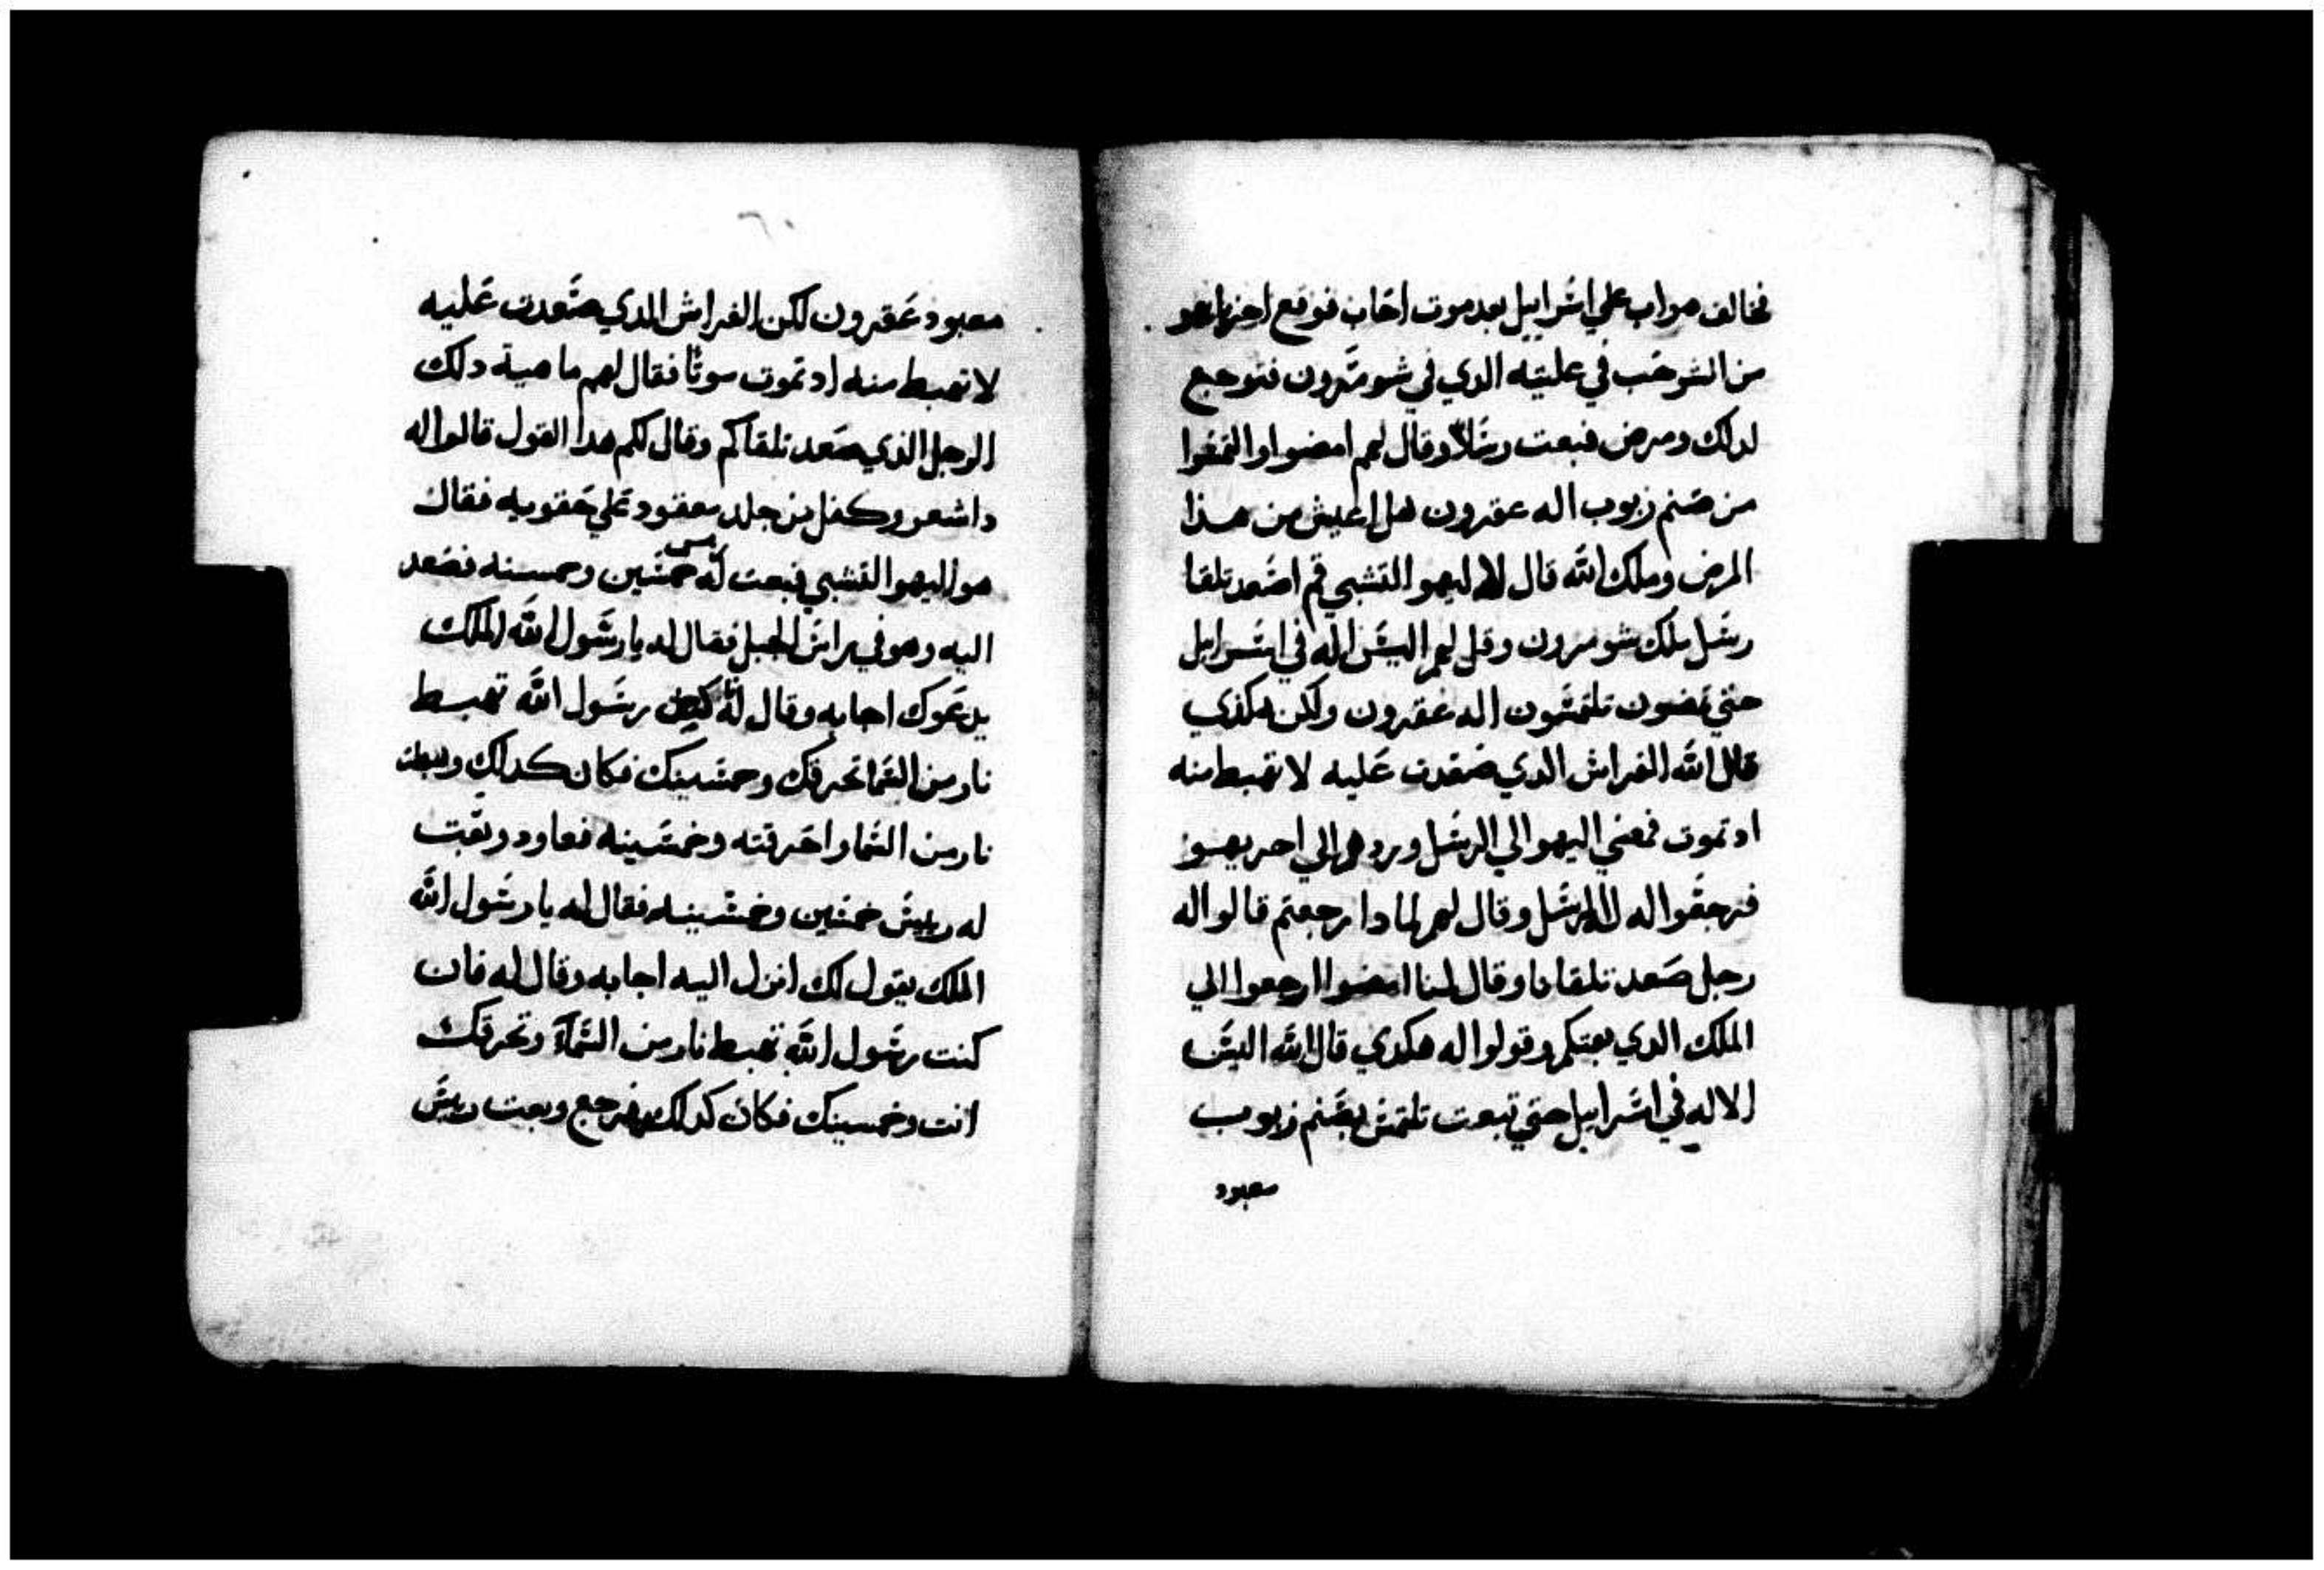 فخالف مواب علي اسراييل بعد موت احاب فوقع احزياهو
من الشرحب في عليته الدي في شومرون فتوجع
لدلك ومرض فبعت رسلاً وقال لهم امضوا والتمسوا
من صنم زبوب اله عقرون هل اعيش من هذا
المرض وملك الله قال لاليهو التشبي قم اصعد تلقا
رسل ملك شومرون وقل لهم اليس اله في اسرايل
حتي تمضون تلتمسون اله عقرون ولكن هكذي
قال الله الفراش الدي صعدت عليه لا تهبط منه
اد تموت فمضي اليهو الي الرسل وردهم الي احزيهو
فرجعوا له الرسل وقال لهم لمادا رجعتم قالوا له
رجل صعد تلقانا وقال لنا امضوا ارجعوا الي
الملك الدي بعتكم وقولوا له هكدي قال الله اليس
الاله في اسراييل حتي تبعت تلتمس بصنم زبوب
معبود
٦٠
معبود عقرون لكن الفراش الدي صعدت عليه
لا تهبط منه اد تموت موتًا فقال لهم ما هية دلك
الرجل الذي صعد تلقاكم وقال لكم هدا القول قالوا له
داشعر وكفل من جلد معقود علي حقويه فقال
هو اليهو التشبي فبعت له خمسين وخمسنه فصعد
اليه وهو في راس الجبل فقال له يا رسول الله الملك
يدعوك اجابه وقال له رسول الله تهبط
نار من السما تحرقك وخمسينك فكان كدلك وهبطت
نار من السما واحرقته وخمسينه فعاود وبعت
له رييس خمسين وخمسينه فقال له يا رسول الله
الملك يقول لك انزل اليه اجابه وقال له فان
كنت رسول الله تهبط نار من السمآء وتحرقك
انت وخمسينك فكان كدلك فرجع وبعت رييس